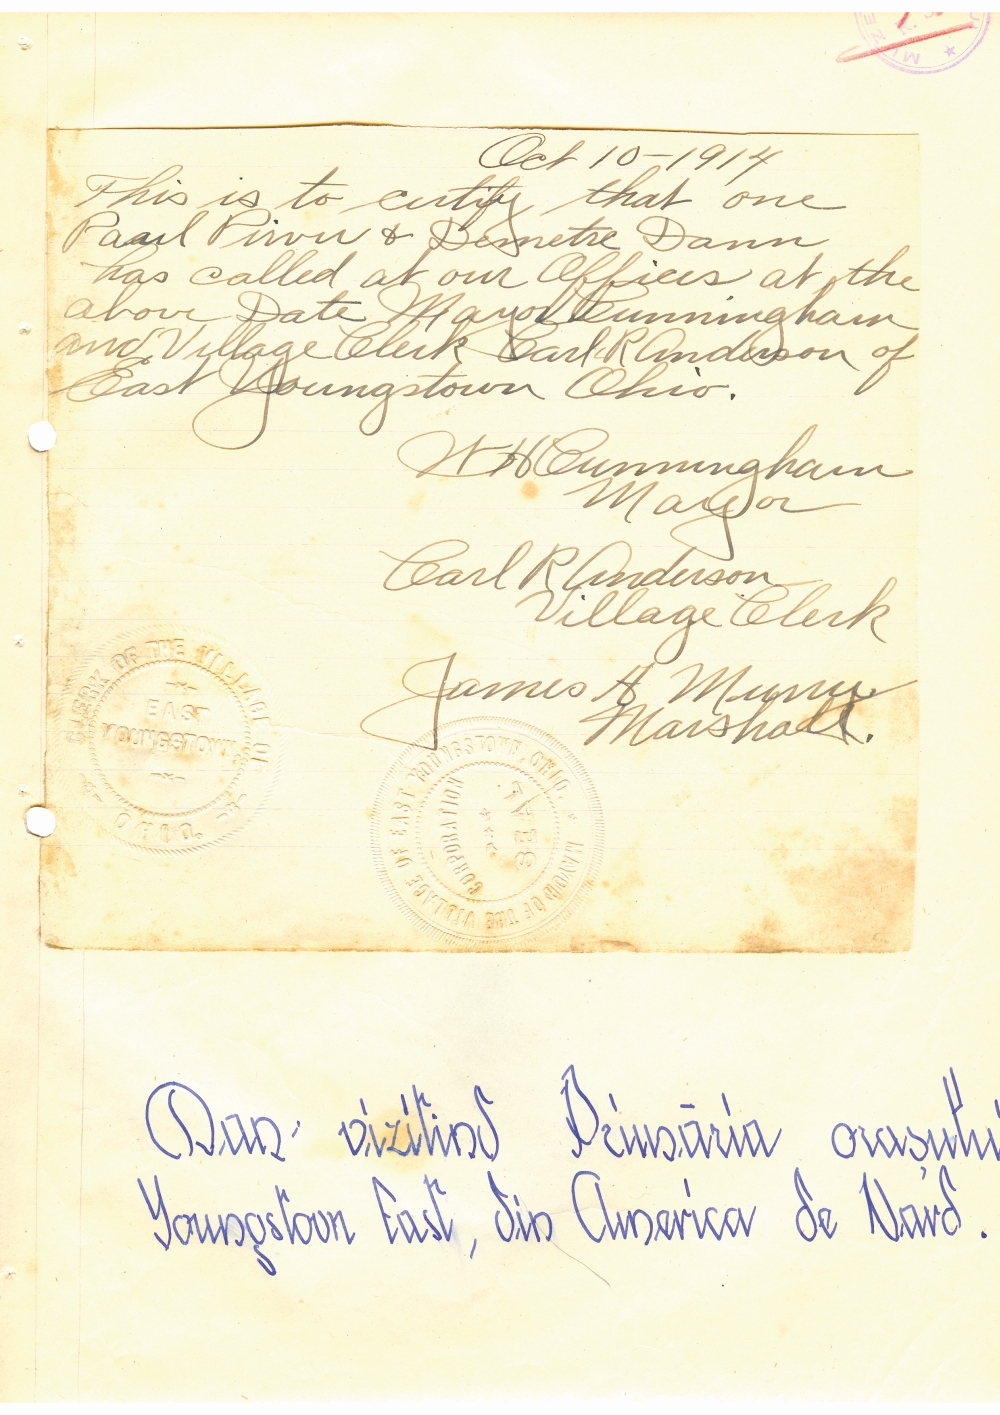 MUZE
Oct 10-1914
This is to certify that one
Paaul Pirvu & Demetre Dann
has called at our Offices at the
above Date Mayor Cunningham
and Village Clerk Carl R Anderson of
East Youngstown Ohio.
W H Cunningham
Mayor
Carl R Anderson
Village Clerk
James A
Marshall.
CLERK OF THE VILLAGE OF
EAST
YOUNGSTOWN
OHIO.
MAYOR OF THE VILLAGE OF EAST YOUNGSTOWN, OHIO.
CORPORATION
SEAL
Dan vizitind Primăria orașului
Youngstovn East, din America de Nord.